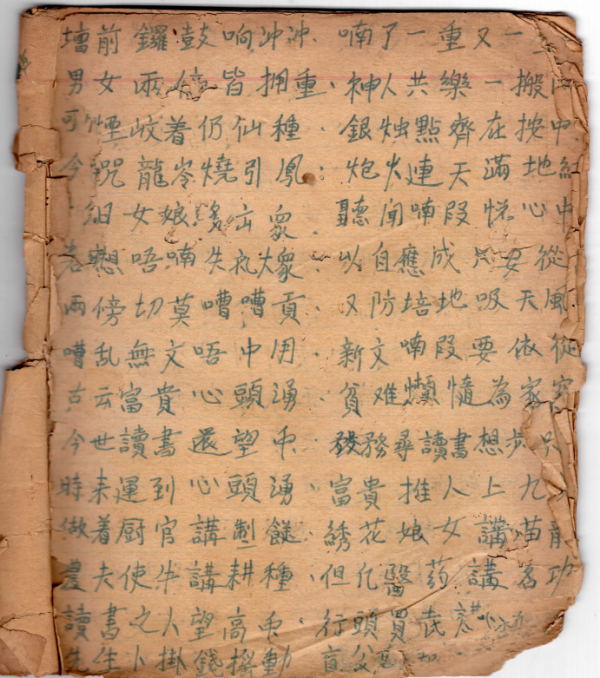 壇前鑼鼓响冲冲．喃了一重又一
男女兩傍皆拥重．神人共樂一般
可煙岐着仍仙種．銀烛點齊在按中
今晚龍岑燒引鳳．炮火連天滿地紅
一细女娘多出象．聽闻喃段悦心中
若想唔喃失礼大象．以自應成只要從
兩傍切莫嘈嘈貢．又防培地吸天風
嘈乱無文唔中用．新文喃段要依從
古云富貴心頭湧．貧难懶惰為家穷
今世讀書還望中．發務尋讀書想步只
時来運到心頭湧．富貴推人上九
做着厨官講制餸．綉花娘女講描龍
農夫使牛講耕種．但凡醫药講为功
讀書之人望高中．行頭買賣
先生卜掛錢搖動．盲父